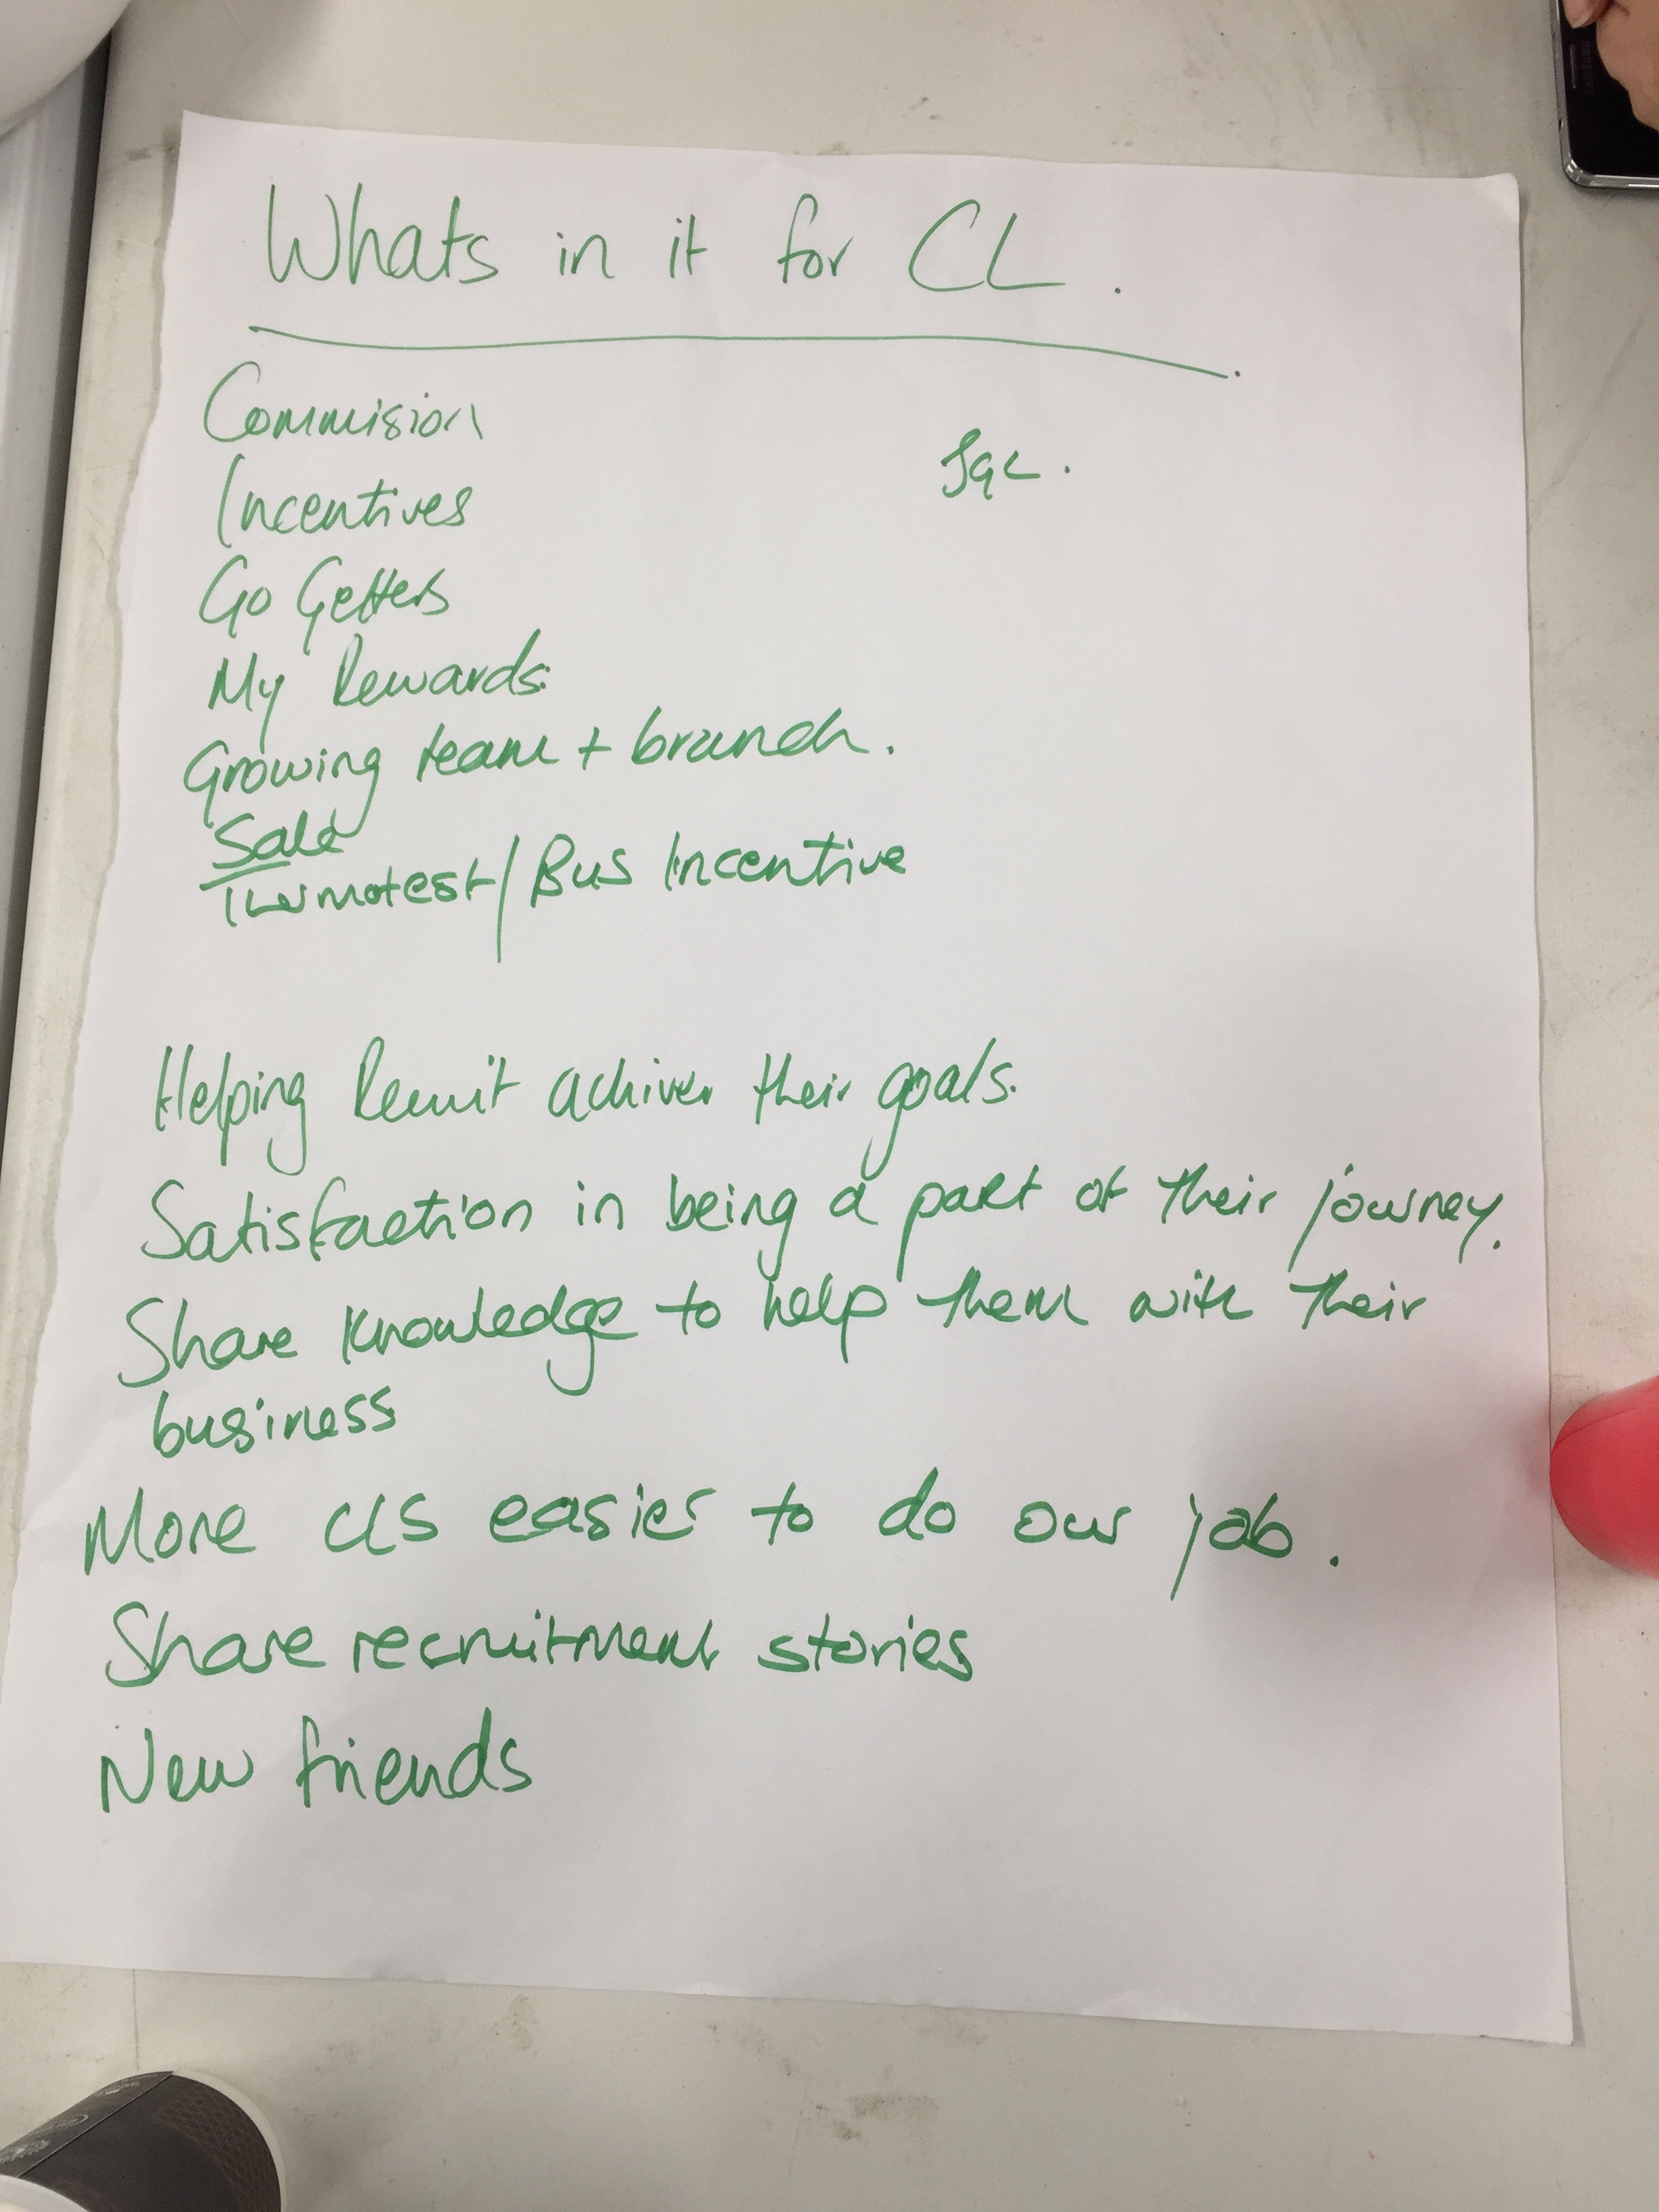 Whats in it for CL.
Commision
Incentives
Go Getters
My Rewards.
Growing team + branch.
/ Bus Incentive
Helping Recruit their goals.
Satisfaction in being a part of their journey.
Share knowledge to help them with their
business
More CLS easier to do our job.
Share recruitment stories
New friends